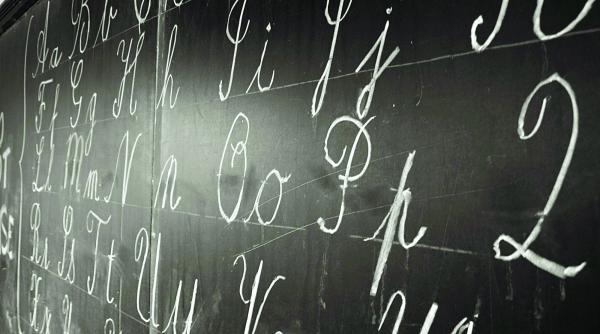 Aa Bb C
Ff Gg Hh Ii Jj
Ll Mm Nn Oo Pp Q
Rr Ss Tt Uu V
Xx